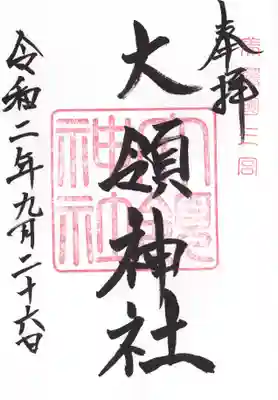 奉拝
大領神社
大領
神社
令和二年九月二十六日